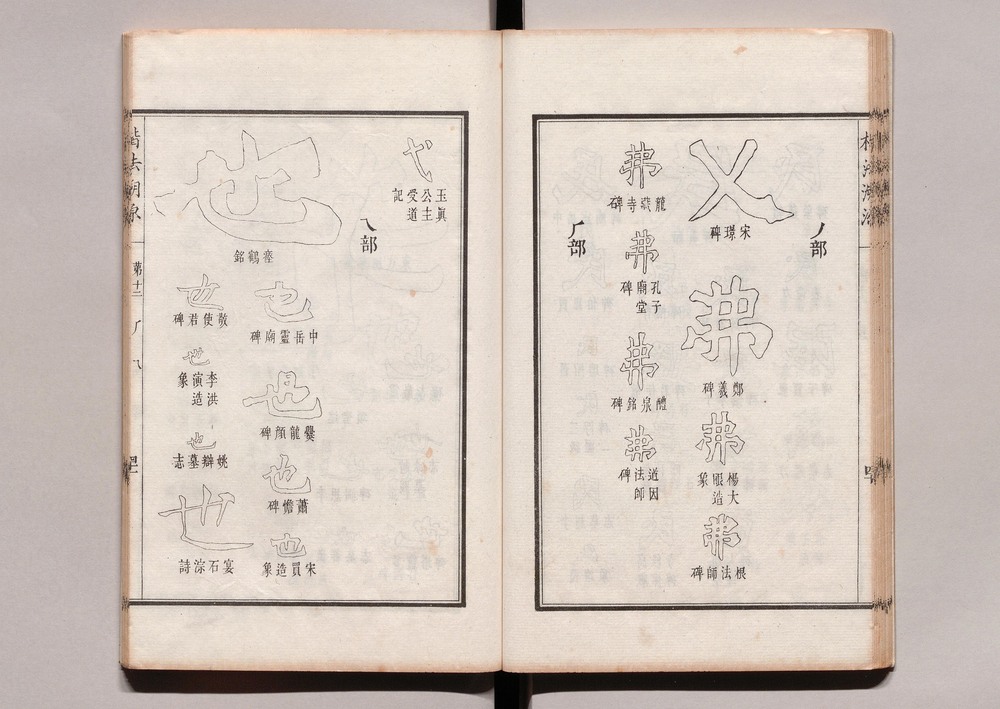 丿部
乂
宋璟碑
弗
鄭羲碑
弗
楊大眼造象
弗
根法師碑
弗
龍藏寺碑
弗
孔子廟堂碑
弗
醴泉銘碑
弗
道因法師碑
𠂆部
弋
玉眞公主受道記
乁部
也
瘞鶴銘
也
中岳靈廟碑
也
爨龍顏碑
也
蕭憺碑
也
宋買造象
也
敬使君碑
也
李洪演造象
也
姚辯墓志
也
宴石淙詩
楷法溯源
第十二